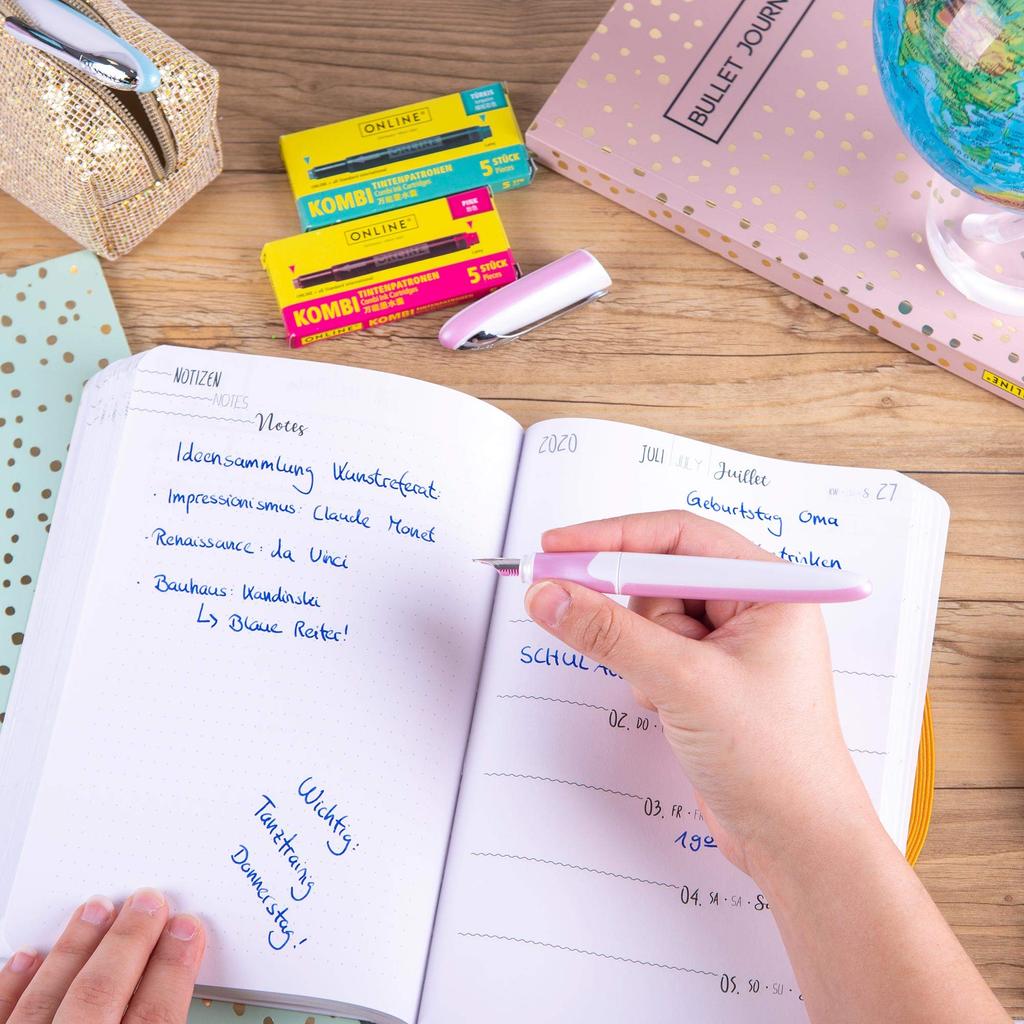 BULLET JOURN
ONLINE®
TÜRKIS
KOMBI TINTENPATRONEN
Combi Ink Cartridges
万能墨水囊
5 STÜCK
Pieces
ONLINE®
PINK
KOMBI TINTENPATRONEN
Combi Ink Cartridges
万能墨水囊
5 STÜCK
Pieces
ONLINE® KOMBI
ONLINE®
NOTIZEN
NOTES
Notes
Ideensammlung Kunstreferat:
· Impressionismus: Claude Monet
· Renaissance: da Vinci
· Bauhaus: Kandinski
↳ Blaue Reiter!
Wichtig:
Tanztraining
Donnerstag!
2020
JULI JULY Juillet
27
Geburtstag Oma
trinken
SCHUL
02. DO ·
03. FR ·
04. SA · SA ·
05. SO · SU ·